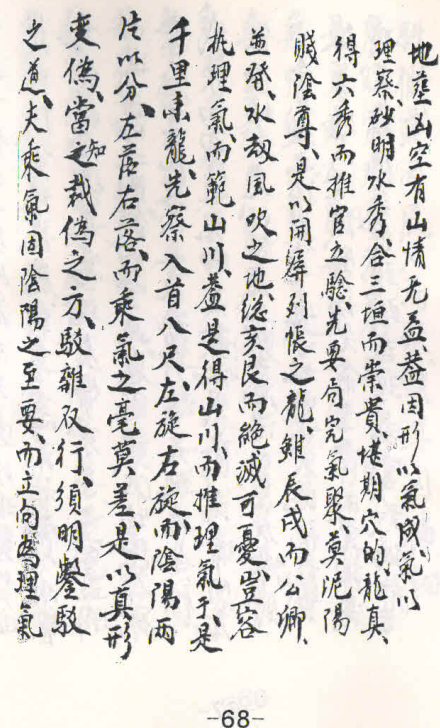 地塟凶空有山情无益葢因形以氣成氣以
理察砂明水秀合三垣而崇貴堪期穴的龍真
得六秀而推官立驗先要局完氣聚莫泥陽
賤陰尊是以開屏列帳之龍雖辰戌而公卿
並發水刼風吹之地縂亥艮而絕滅可憂豈容
执理氣而範山川葢是得山川而推理氣于是
千里来龍先察入首八尺左旋右旋而陰陽兩
片以分左落右落而乘氣之毫莫差是以真形
变偽當知之裁偽之方駁雜双行須明鑿駁
之道夫乘氣固陰陽之至要而立向為理氣
-68-